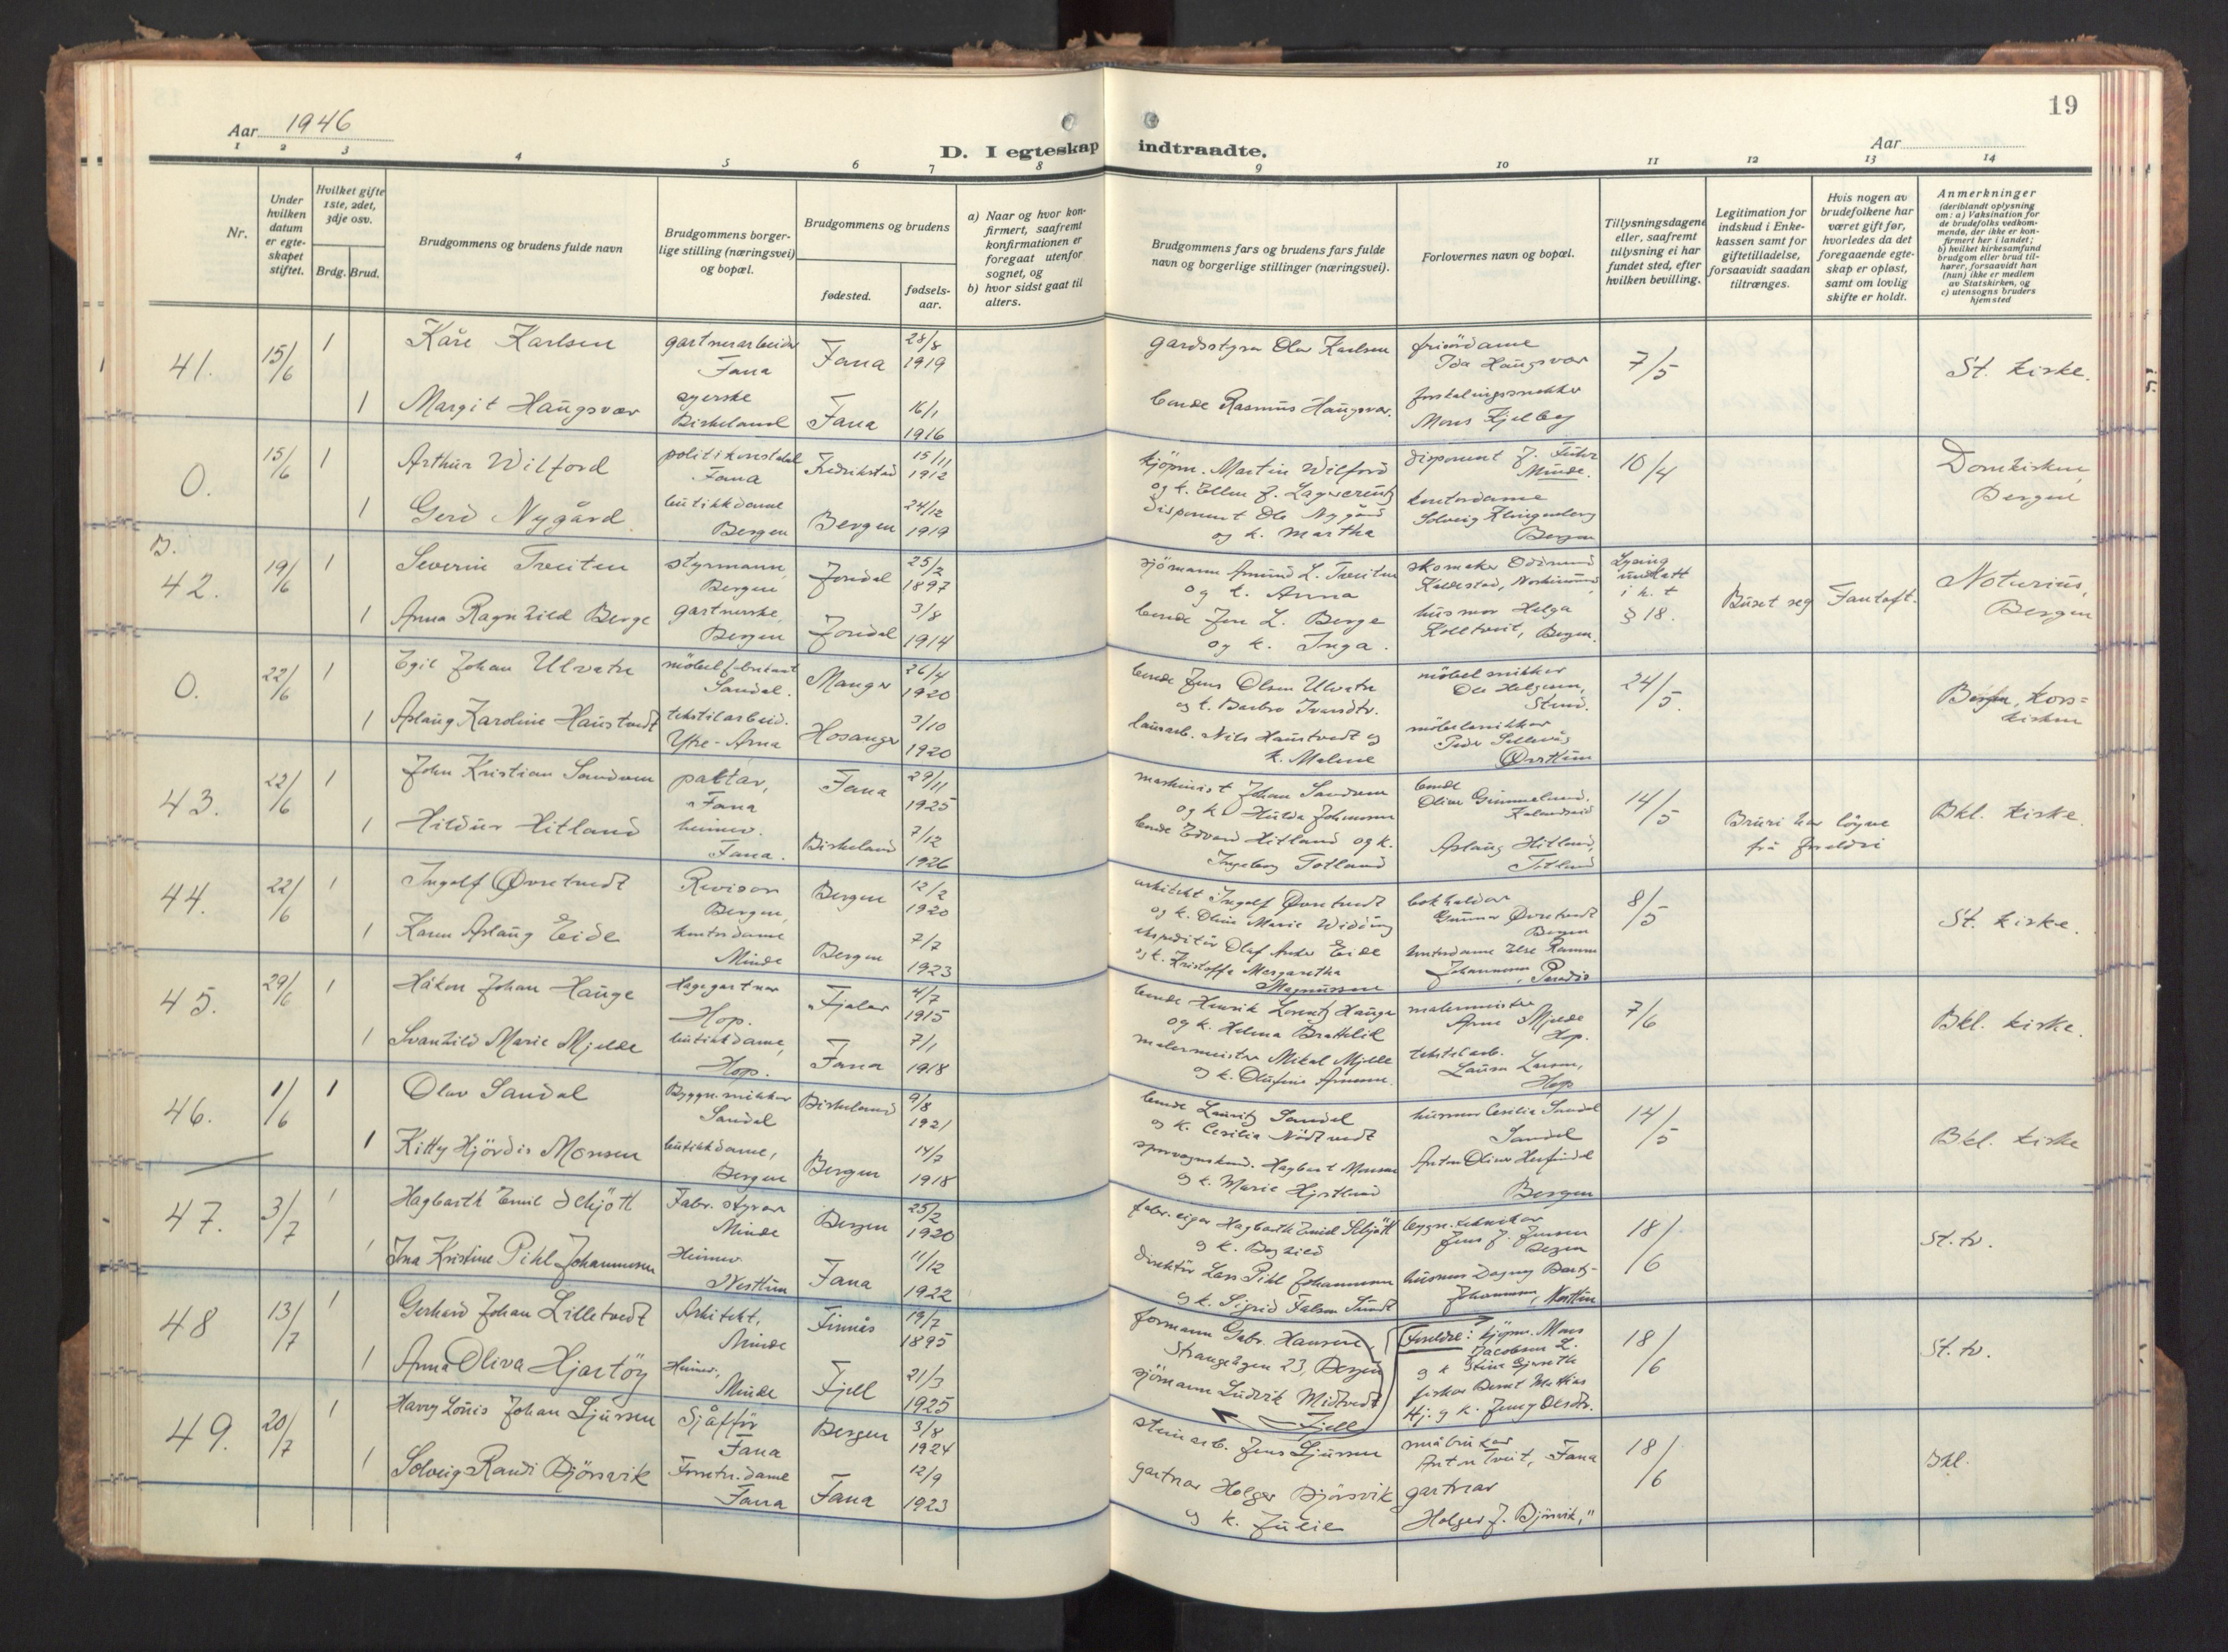 19
Aar 1946
Aar
D. I egteskap indtraadte.
1 2 3 4 5 6 7 8 9 10 11 12 13 14
Nr.
Under hvilken datum er egteskapet stiftet.
Hvilket gifte 1ste, 2det, 3dje osv.
Brdg. Brud.
Brudgommens og brudens fulde navn
Brudgommens borgerlige stilling (næringsvei) og bopæl.
Brudgommens og brudens
fødested.
fødselsaar.
a) Naar og hvor konfirmert, saafremt konfirmationen er foregaat utenfor sognet, og
b) hvor sidst gaat til alters.
Brudgommens fars og brudens fars fulde navn og borgerlige stillinger (næringsvei).
Forlovernes navn og bopæl.
Tillysningsdagene eller, saafremt tillysning ei har fundet sted, efter hvilken bevilling.
Legitimation for indskud i Enkekassen samt for giftetilladelse, forsaavidt saadan tiltrænges.
Hvis nogen av brudefolkene har været gift før, hvorledes da det foregaaende egteskap er opløst, samt om lovlig skifte er holdt.
Anmerkninger
(deriblandt oplysning om: a) Vaksination for de brudefolks vedkommende, der ikke er konfirmert her i landet; b) hvilket kirkesamfund brudgom eller brud tilhører, forsaavidt han (hun) ikke er medlem av Statskirken, og c) utensogns bruders hjemsted
41. 15/6 1 Kåre Karlsen gartnerarbeider Fana Fana 28/8 1919 gardsstyrer Olav Karlsen Ida Haugsvær 7/5 St. kirke.
1 Margit Haugsvær syerske Birkeland Fana 16/1 1916 bonde Rasmus Haugsvær. Mons Kjelby
O. 15/6 1 Arthur Wilford politikonstabel Fana Fredrikstad 15/11 1912 kjöpm. Martin Wilford disponent J. Minde. 10/4 Domkirken, Bergen
og k. Ellen J.
1 Gerd Nygård butikkdame Bergen Bergen 24/12 1919 disponent Ole Nygård og k. Martha kontordame Solveig Klingenberg Bergen
B. 42. 19/6 1 Severin Treiten styrmann, Bergen Jondal 25/2 1897 sjömann Amund L. Treiten og k. Anna skomaker Oddmund Lysing unnlatt i h. t § 18. Buset seg Fantoft. Notarius, Bergen
1 Anna Ragnhild Berge gartnerske, Bergen Jondal 3/8 1914 bonde Jon L. Berge og k. Inga. husmor Helga Kolltveit, Bergen.
O. 22/6 1 Egil Johan Ulvatn möbelfabrikant Sandal. Manger 26/4 1920 bonde Jens Olsen Ulvatn og k. Barbro Ivarsdtr. möbelsnikker Ole Helgesen, Stend. 24/5. Bergen, Korskirken
1 Aslaug Karoline Haustvedt tekstilarbeid. Ytre-Arna Hosanger 3/10 1920 Nils Haustvedt og k. Malene möbelsnikker Peder
43. 22/6 1 John Kristian Sandven Fana Fana 29/11 1925 maskinist Johan Sandven og k. Hulda Johannsen bonde Kalandseid 14/5 Bruri har löyve frå foreldri Bkl. kirke.
1 Hildur Hitland heimev. Fana. Birkeland 7/12 1926 bonde Edvard Hitland og k. Ingeborg Totland Aslaug Hitland,
44. 22/6 1 Ingolf Øvretvedt Revisor Bergen, Bergen 12/2 1920 arkitekt Ingolf Øvretvedt og k. Oline Marie Widding bokholdar Gunnar Øvretvedt Bergen 8/5 St. kirke.
1 Karen Aslaug Eide kontordame Minde Bergen 7/7 1923 ekspeditör Olaf Eide og k. Kristoffa Margaretha Magnussen kontordame Else Johannesen, Paradis
45. 29/6 1 Håkon Johan Hauge Hagegartner Hop. Fjaler 4/7 1915 bonde Henrik Lorentz Hauge og k. Helena Brattelid malermeister Arne Mjelde Hop. 7/6 Bkl. kirke.
1 Svanhild Marie Mjelde butikkdame, Hop. Fana 7/1 1918 malermeister Mikal Mjelde og k. Olufine tekstilarb. Laura Larsen, Hop
46. 1/6 1 Olav Sandal Byggn. snikker Sandal Birkeland 9/8 1921 bonde Lauritz Sandal og k. Cesilia Nödtvedt husmor Cesilia Sandal Sandal 14/5 Bkl. kirke
1 Kitty Hjördis Monsen butikkdame, Bergen Bergen 14/7 1918 Hagbart Monsen og k. Marie Anton Oliver Bergen
47. 3/7 1 Hagbarth Emil Schjött Fabr. styrar Minde Bergen 25/2 1920 fabr. eigar Hagbarth Emil Schjött og k. Jens J. Jensen Bergen 18/6 St. kv.
1 Ina Kristine Pihl Johannesen Heimev Nesttun Fana 11/12 1922 direktör Lars Pihl Johannesen og k. Sigrid Falsen Sundt husmor Dagny Johannesen, Nesttun
48 13/7 1 Gerhard Johan Lilletvedt Arkitekt, Minde Finnås 19/7 1895 formann Gabr. Hansen, Strangehagen 23, Bergen Foreldre: kjöpm. Mons Jacobsen L. 18/6 St. kv.
1 Anna Oliva Hjartöy Heimev, Minde Fjell 21/3 1925 sjömann Ludvik Midtvedt Fjell fiskar Bernt Mathias Hj. og k. Jenny Olsdtr.
49. 20/7 1 Harry Louis Johan Sjursen Sjåfför Fana Bergen 3/8 1924 steinarb. Jens Sjursen småbrukar Anton Tveit, Fana 18/6 Bkl.
1 Solveig Randi Björsvik Forretn.dame Fana Fana 12/9 1923 gartnar Holger Björsvik og k. Julie gartnar Holger J. Björsvik, "